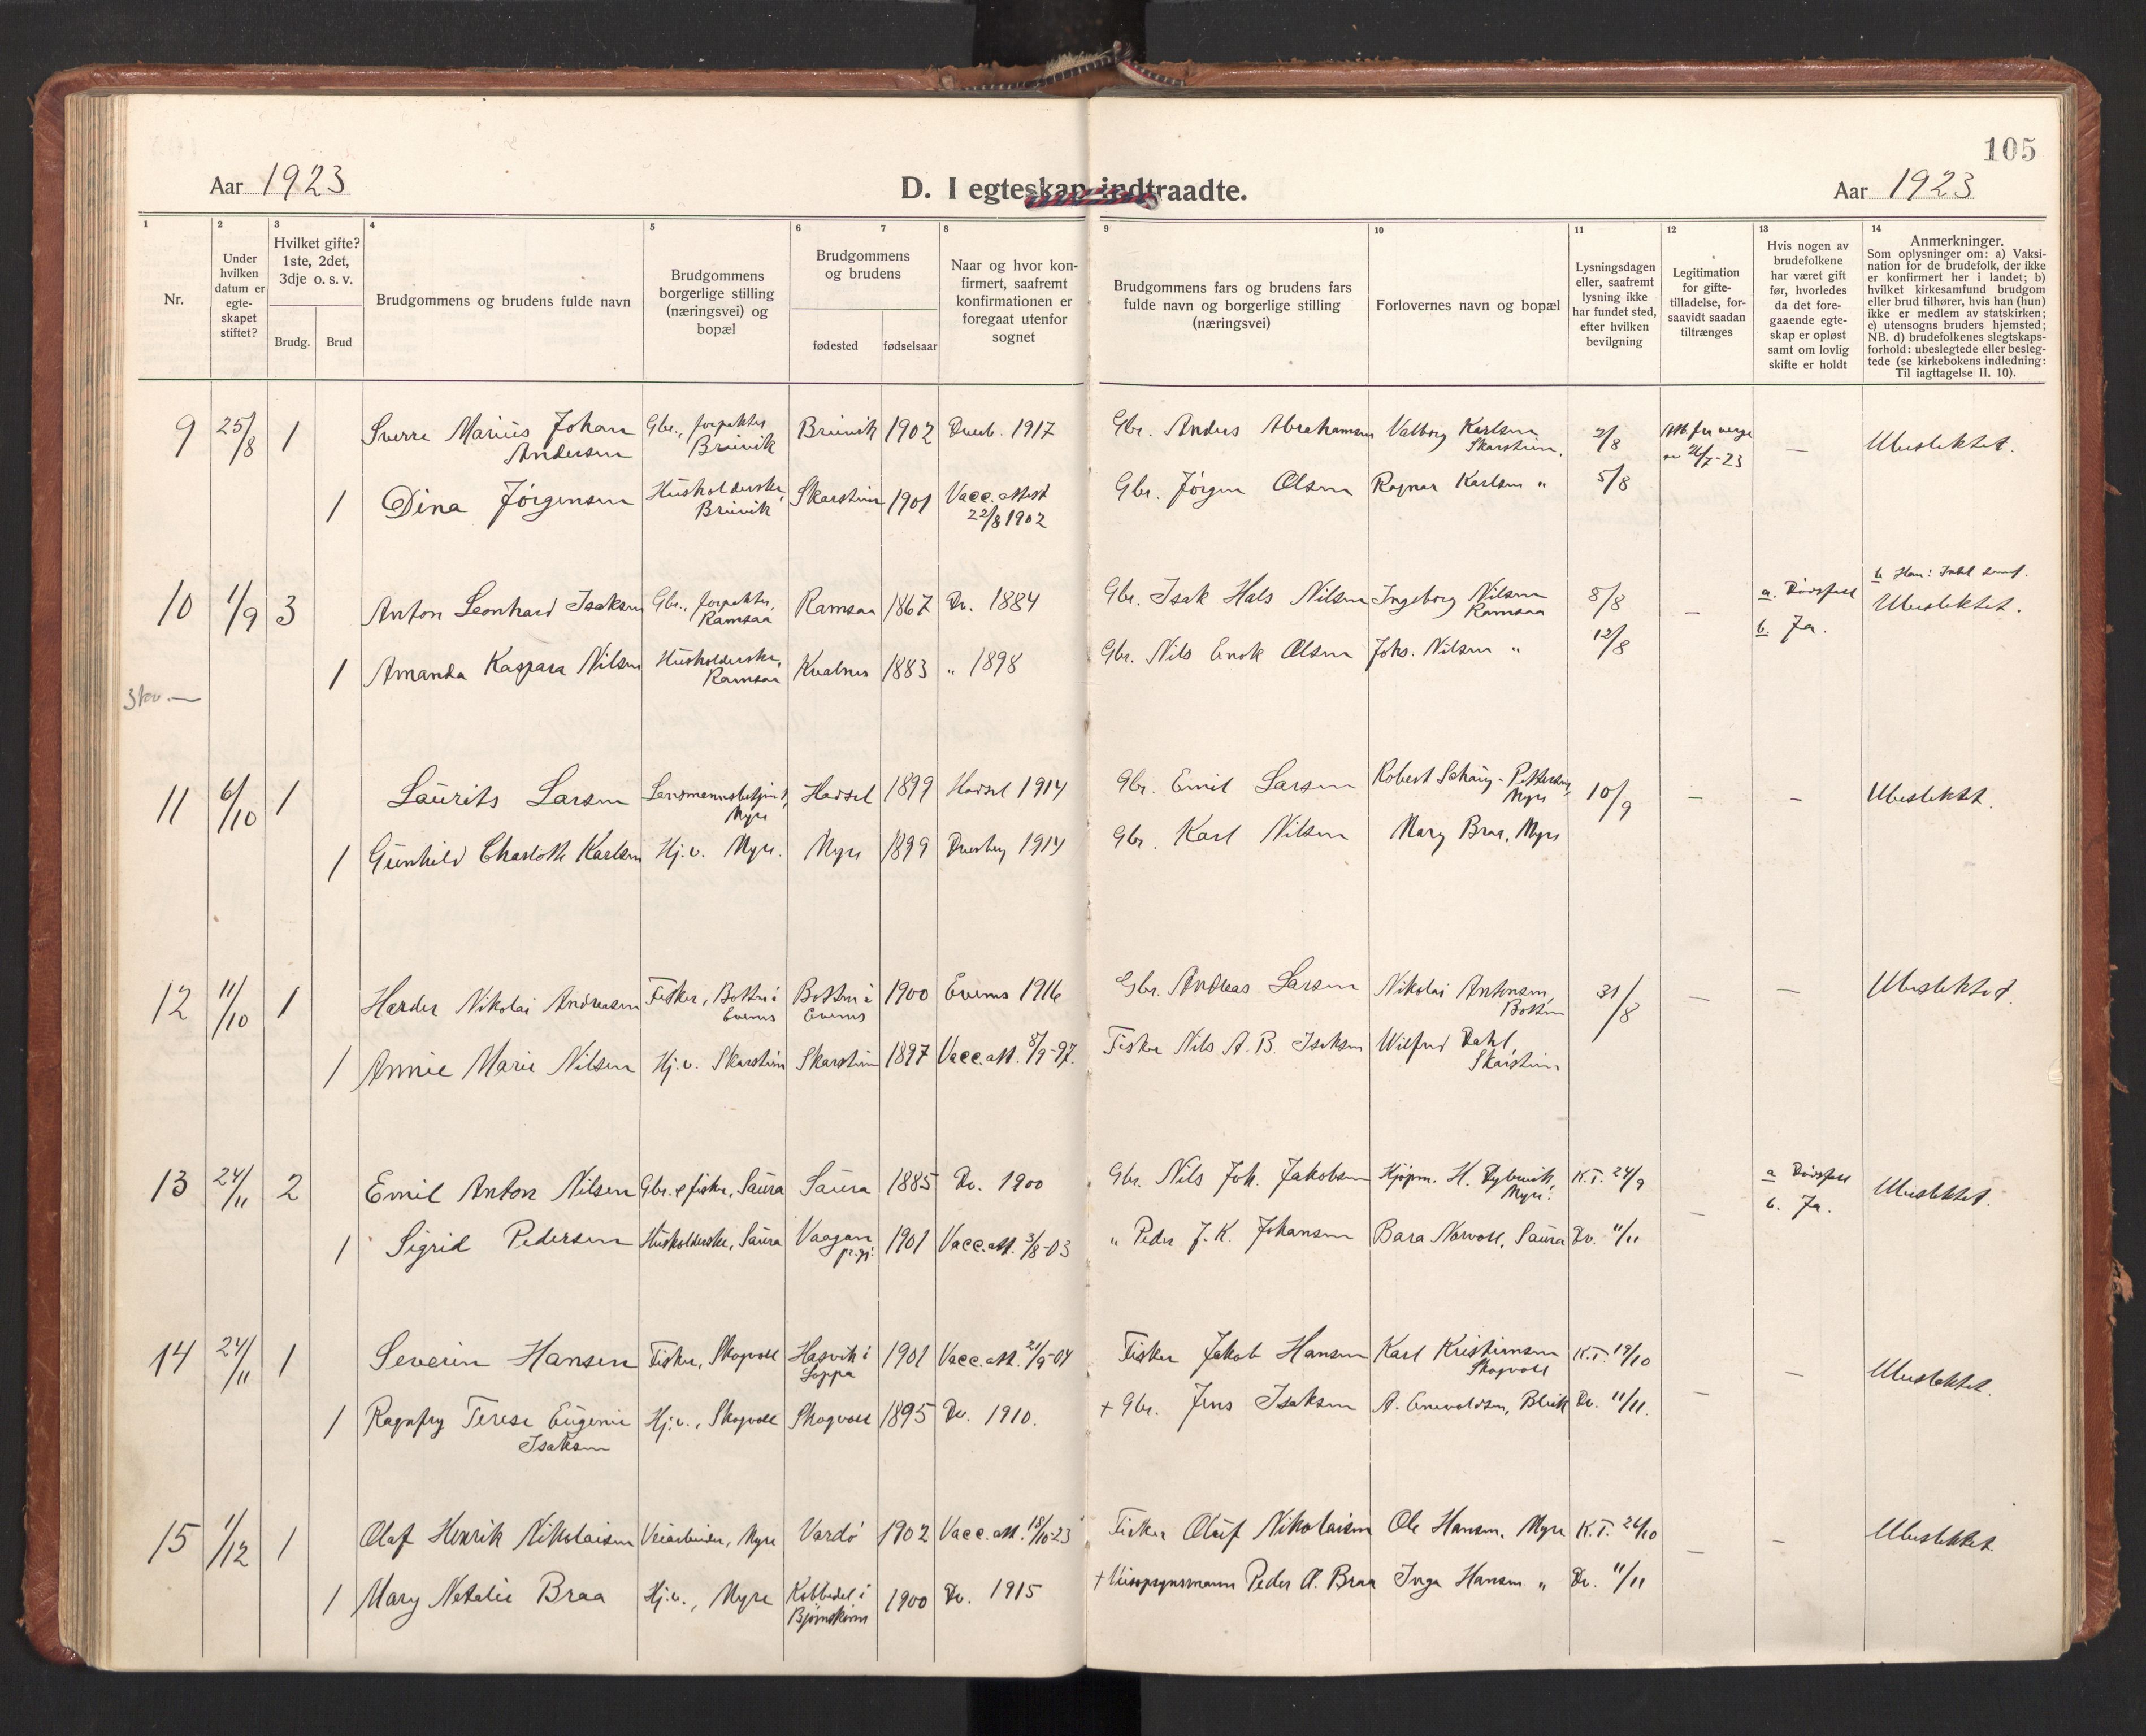 105
Aar 1923
D. I egteskap indtraadte.
Aar 1923
1 2 3 4 5 6 7 8 9 10 11 12 13 14
Nr.
Under hvilken datum er egte-skapet stiftet?
Hvilket gifte? 1ste, 2det, 3dje o. s. v.
Brudg. Brud
Brudgommens og brudens fulde navn
Brudgommens borgerlige stilling (næringsvei) og bopæl
Brudgommens og brudens
fødested fødselsaar
Naar og hvor kon-firmert, saafremt konfirmationen er foregaat utenfor sognet
Brudgommens fars og brudens fars fulde navn og borgerlige stilling (næringsvei)
Forlovernes navn og bopæl
Lysningsdagen eller, saafremt lysning ikke har fundet sted, efter hvilken bevilgning
Legitimation for gifte-tilladelse, for-saavidt saadan tiltrænges
Hvis nogen av brudefolkene har været gift før, hvorledes da det fore-gaaende egte-skap er opløst samt om lovlig skifte er holdt
Anmerkninger.
Som oplysninger om: a) Vaksi-nation for de brudefolk, der ikke er konfirmert her i landet; b) hvilket kirkesamfund brudgom eller brud tilhører, hvis han (hun) ikke er medlem av statskirken; c) utensogns bruders hjemsted; NB. d) brudefolkenes slegtskaps-forhold: ubeslegtede eller besleg-tede (se kirkebokens indledning: Til iagttagelse II. 10).
9 25/8 1 Sverre Marius Johan Andersen Gbr., forpakter Brüvik Brüvik 1902 Dverb. 1917 Gbr. Anders Abrahamsen Valborg Karlsen Skarstein. 2/8 Att. fra verge 26/7-23 — Ubeslektet.
1 Dina Jörgensen Husholderske, Brüvik Skarstein 1901 Vacc. attest 22/8 1902 Gbr. Jörgen Olsen Ragnar Karlsen " 5/8
10 1/9 3 Anton Leonhard Isaksen Gbr., forpakter, Ramsaa Ramsaa 1867 Dv. 1884 Gbr. Isak Hals Nilsen Ingeborg Nilsen Ramsaa 5/8 — a. Dödsfall b. Ja. Ubeslektet.
1 Amanda Kaspara Nilsen Husholderske, Ramsaa Kvalnes 1883 " 1898 Gbr. Nils Enok Olsen Johs. Nilsen " 12/8
11 6/10 1 Laurits Larsen Lensmannsbetjent, Myre Hadsel 1899 Hadsel 1914 Gbr. Emil Larsen Robert Schäug-Pettersen, Myre 10/9 — — Ubeslektet.
1 Gunhild Charlotte Karlsen Hj.v. Myre. Myre 1899 Dverberg 1914 Gbr. Karl Nilsen Mary Braa, Myre
12 11/10 1 Harder Nikolai Andreasen Fisker, Botten i Evenes Botten i Evenes 1900 Evenes 1916 Gbr. Andreas Larsen Nikolai Antonsen, Botten 31/8 — — Ubeslektet.
1 Annie Marie Nilsen Hj.v. Skarstein Skarstein 1897 Vacc. att. 8/9-97. Fisker Nils A. B. Isaksen Wilfred Dahl, Skarstein
13 24/11 2 Emil Anton Nilsen Gbr. & fisker, Saura Saura 1885 Dv. 1900 Gbr. Nils Joh. Jakobsen Kjöpm. H. Dybvik, Myre. K.T. 24/9 — a Dödsfall b. Ja. Ubeslektet.
1 Sigrid Pedersen Husholderske, Saura Vaagan pr.gj. 1901 Vacc. att. 3/8-03 " Peder J. K. Johansen Bara Norvoll, Saura Dv. 11/11
14 24/11 1 Severin Hansen Fisker, Skogvoll Hasvik i Loppa 1901 Vacc. att. 21/9-04 Fisker Jakob Hansen Karl Kristiansen Skogvoll K.T. 19/10 — — Ubeslektet.
1 Ragnfry Terese Eugenie Isaksen Hj.v., Skogvoll Skogvoll 1895 Dv. 1910. + Gbr. Jens Isaksen A. Enevoldsen, Bleik Dv. 11/11.
15 1/12 1 Olaf Henrik Nikolaisen Veiarbeider, Myre Vardö 1902 Vacc. att. 18/10-23 Fisker Oluf Nikolaisen Ole Hansen, Myre K.T. 26/10 — — Ubeslektet.
1 Mary Natalie Braa Hj.v., Myre Kobbedal i Björnskinn 1900 Dv. 1915 + Veiopsynsmann Peder A. Braa Inga Hansen " Dv. 11/11